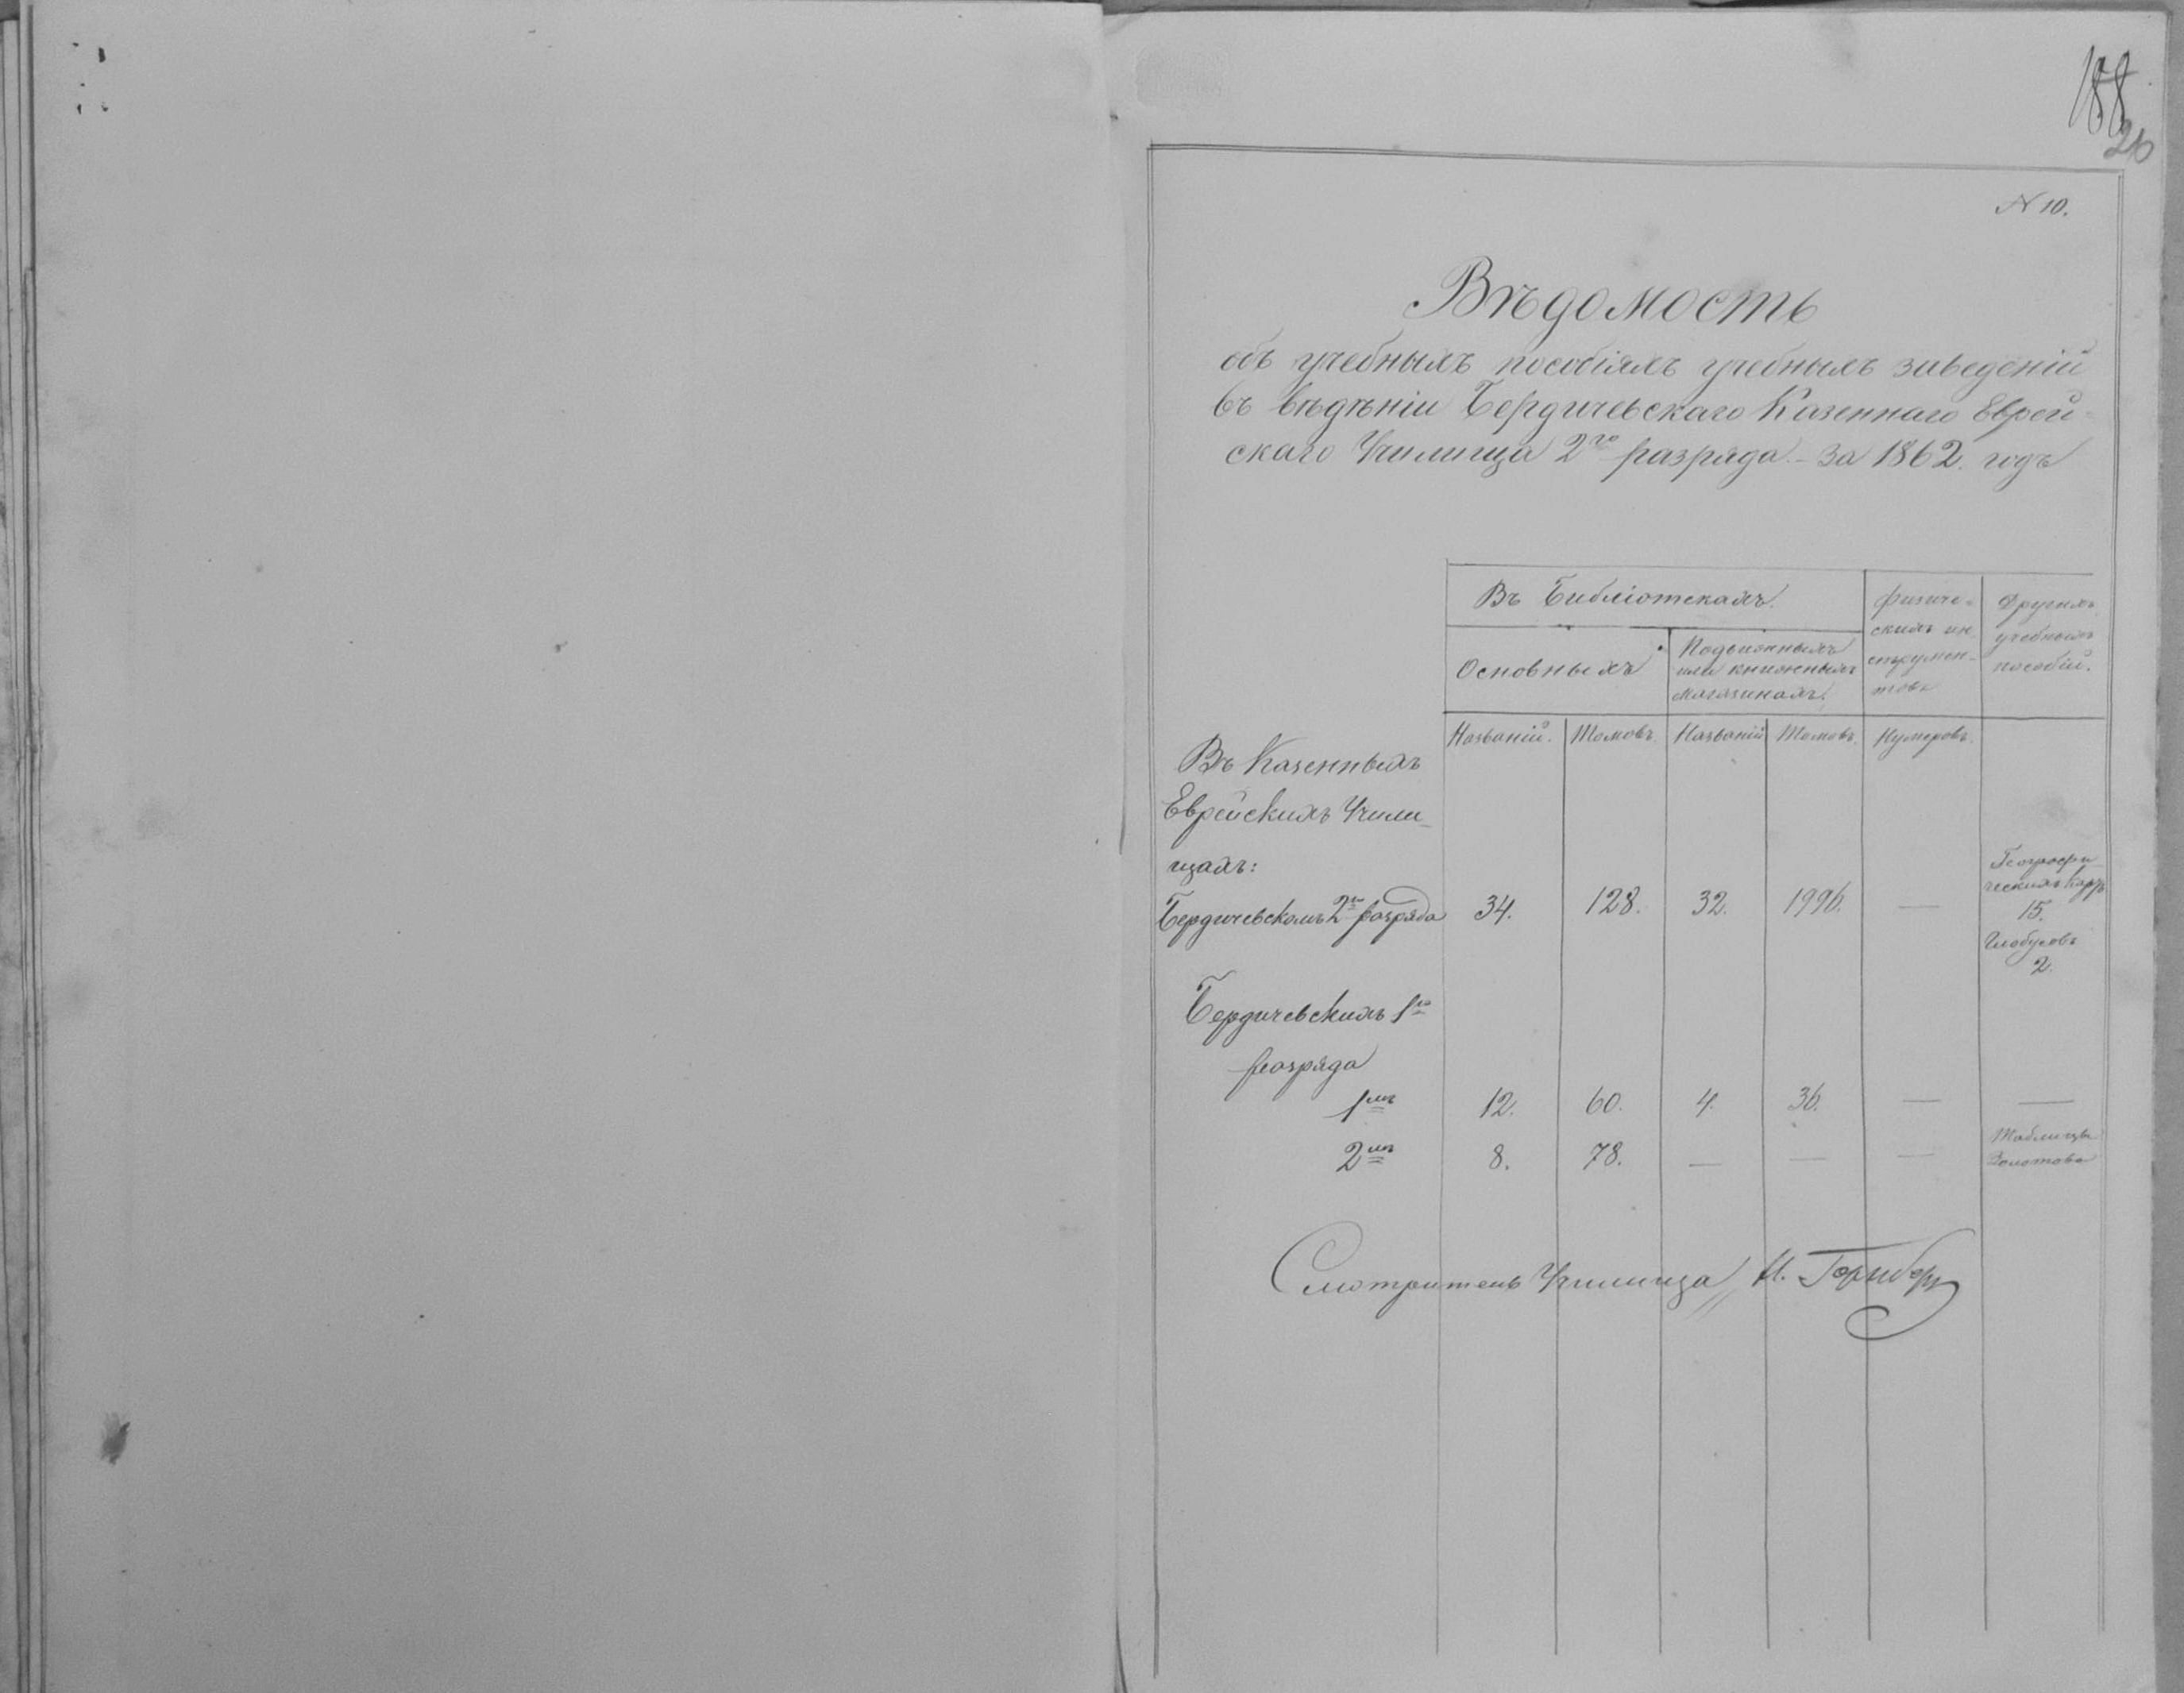 188
26
N 10.
Вѣдомость
объ учебныхъ пособіяхъ учебныхъ заведеній
въ вѣдѣніи Бердичевскаго Казеннаго Еврей-
скаго Училища 2го разряда - за 1862. годъ
Въ Библіотекахъ.
Физиче-
скихъ ин-
струмен-
товъ
Другихъ
учебныхъ
пособій.
Основныхъ
Подвижныхъ
или книжныхъ
магазинахъ.
Названій. Томовъ. Названій Томовъ. Нумеровъ.
Въ Казенныхъ
Еврейскихъ Учили-
щахъ:
Бердичевскомъ 2го разряда 34. 128. 32. 1996. —
Географи-
ческихъ Картъ
15.
Глобусовъ
2.
Бердичевскихъ 1го
разряда
1мъ 12. 60. 4. 36. — —
2мъ 8. 78. — — —
Таблицы
Золотова
Смотритель Училища М.